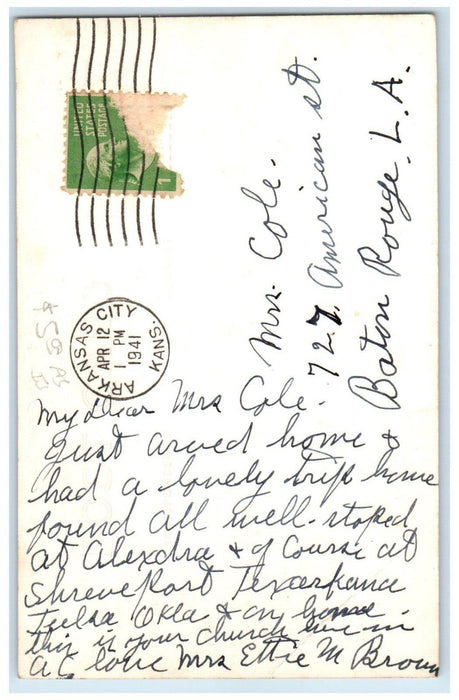 UNITED
STATES
POSTAGE
1
ARKANSAS CITY
APR 12
1 PM
1941
KANS.
Mrs. Cole.
727 American st.
Baton Rouge. L.A.
My Dear Mrs Cole.
Just arved home &
had a lovely trip home
found all well. stoped
at Alexdra & of Course at
Shreveport Texerkana
Tulsa Okla & on home.
this is your church
A.C. love Mrs Ettie M Brown